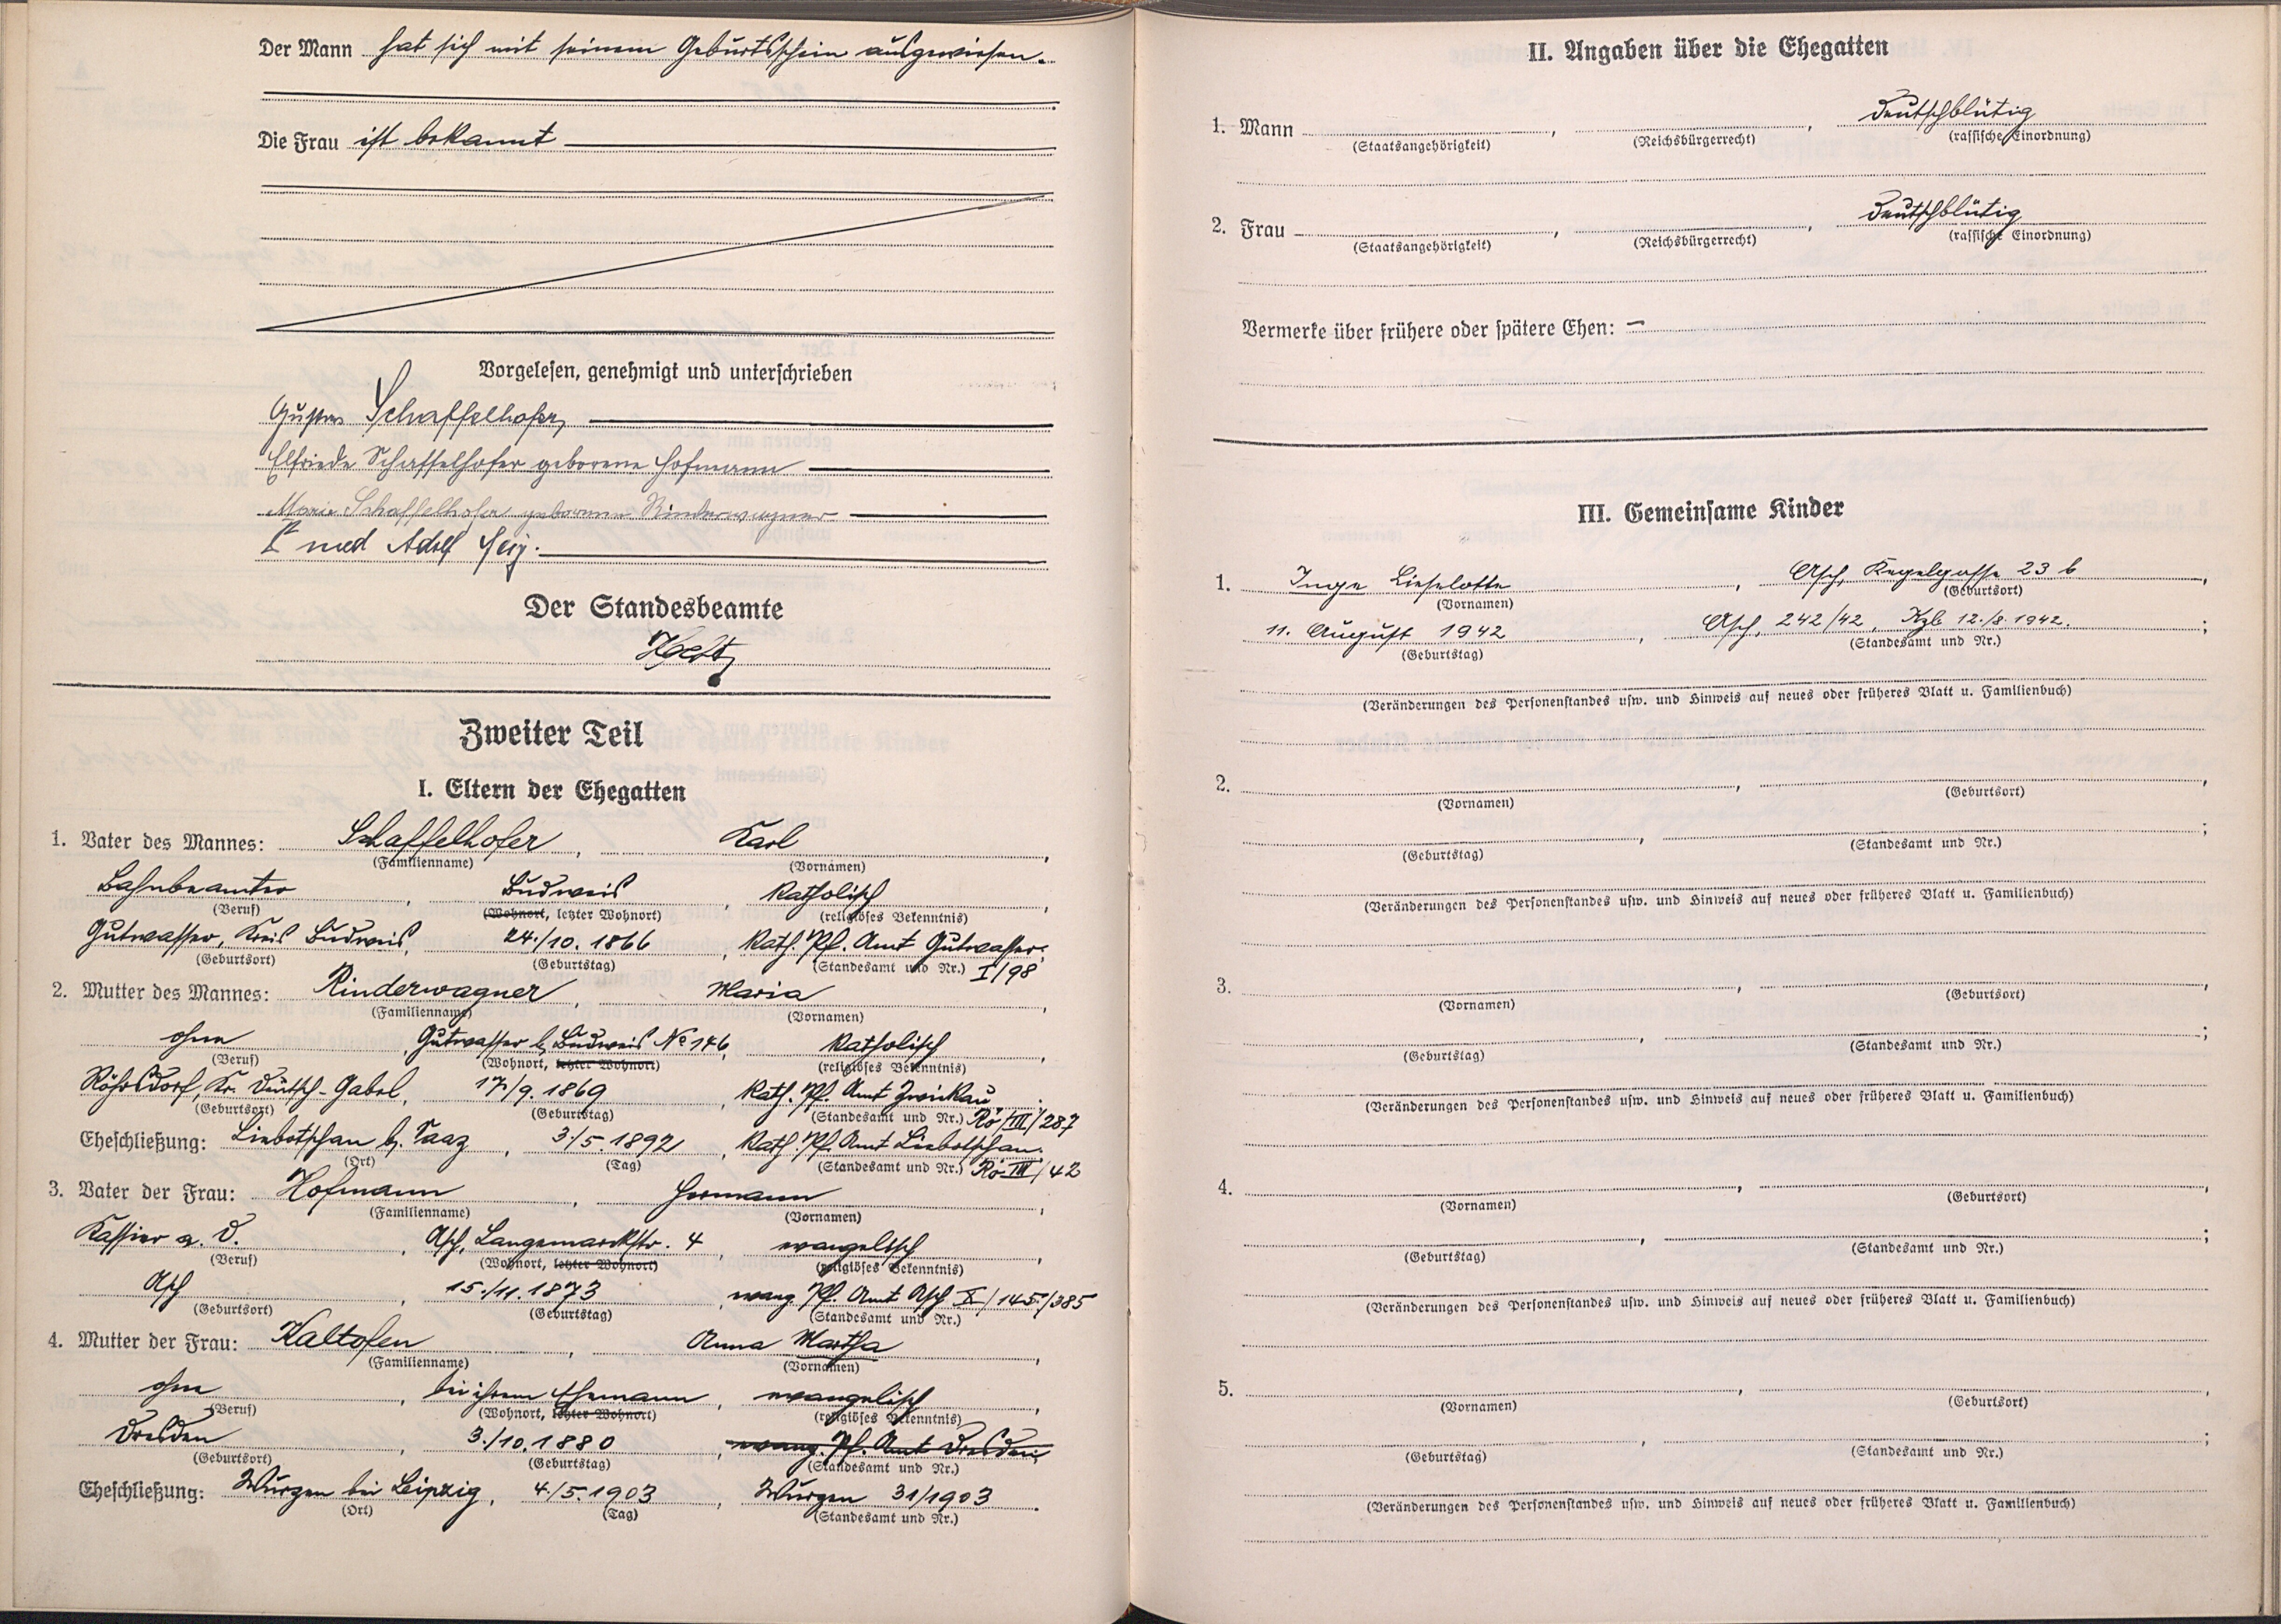 Der Mann hat sich mit seinem Geburtsschein ausgewiesen.
Die Frau ist bekannt
Vorgelesen, genehmigt und unterschrieben
Gustav Schaffelhofer
Elfriede Schaffelhofer geborene Hofmann
Maria Schaffelhofer geborene Rinderwagner
Dr med Adolf
Der Standesbeamte
Zweiter Teil
I. Eltern der Ehegatten
1. Vater des Mannes: Schaffelhofer, Karl,
(Familienname) (Vornamen)
Bahnbeamter, Budweis, katholisch,
(Beruf) (Wohnort, letzter Wohnort) (religiöses Bekenntnis)
Gutwasser, Kreis Budweis, 24./10. 1866, Kath. Pf. Amt Gutwasser.
(Geburtsort) (Geburtstag) (Standesamt und Nr.) I/98
2. Mutter des Mannes: Rinderwagner, Maria,
(Familienname) (Vornamen)
ohne, Gutwasser b. Budweis No 146, katholisch,
(Beruf) (Wohnort, letzter Wohnort) (religiöses Bekenntnis)
Röhrsdorf, Kr. Deutsch-Gabel, 17/9. 1869, Kath. Pf. Amt Zwickau.
(Geburtsort) (Geburtstag) (Standesamt und Nr.) Rö/III/287
Eheschließung: Liebotschan b. Saaz, 3./5. 1892, Kath. Pf. Amt Liebotschan.
(Ort) (Tag) (Standesamt und Nr.) Rö-III/42
3. Vater der Frau: Hofmann, Hermann,
(Familienname) (Vornamen)
Kassier a. D., Asch, Langemarckstr. 4, evangelisch,
(Beruf) (Wohnort, letzter Wohnort) (religiöses Bekenntnis)
Asch, 15./11. 1873, evang. Pf. Amt Asch X/145/385
(Geburtsort) (Geburtstag) (Standesamt und Nr.)
4. Mutter der Frau: Kaltofen, Anna Martha,
(Familienname) (Vornamen)
ohne, bei ihrem Ehemann, evangelisch,
(Beruf) (Wohnort, letzter Wohnort) (religiöses Bekenntnis)
Dresden, 3./10. 1880, evang. Pf. Amt Dresden.
(Geburtsort) (Geburtstag) (Standesamt und Nr.)
Eheschließung: Wurzen bei Leipzig, 4./5. 1903, Wurzen 31/1903.
(Ort) (Tag) (Standesamt und Nr.)
II. Angaben über die Ehegatten
1. Mann , , deutschblütig
(Staatsangehörigkeit) (Reichsbürgerrecht) (rassische Einordnung)
2. Frau , , deutschblütig
(Staatsangehörigkeit) (Reichsbürgerrecht) (rassische Einordnung)
Vermerke über frühere oder spätere Ehen: —
III. Gemeinsame Kinder
1. Inge Lieselotte, Asch, Kegelgasse 23 b,
(Vornamen) (Geburtsort)
11. August 1942, Asch, 242/42, Kzb 12./8. 1942.;
(Geburtstag) (Standesamt und Nr.)
(Veränderungen des Personenstandes usw. und Hinweis auf neues oder früheres Blatt u. Familienbuch)
2. , ,
(Vornamen) (Geburtsort)
, ;
(Geburtstag) (Standesamt und Nr.)
(Veränderungen des Personenstandes usw. und Hinweis auf neues oder früheres Blatt u. Familienbuch)
3. , ,
(Vornamen) (Geburtsort)
, ;
(Geburtstag) (Standesamt und Nr.)
(Veränderungen des Personenstandes usw. und Hinweis auf neues oder früheres Blatt u. Familienbuch)
4. , ,
(Vornamen) (Geburtsort)
, ;
(Geburtstag) (Standesamt und Nr.)
(Veränderungen des Personenstandes usw. und Hinweis auf neues oder früheres Blatt u. Familienbuch)
5. , ,
(Vornamen) (Geburtsort)
, ;
(Geburtstag) (Standesamt und Nr.)
(Veränderungen des Personenstandes usw. und Hinweis auf neues oder früheres Blatt u. Familienbuch)